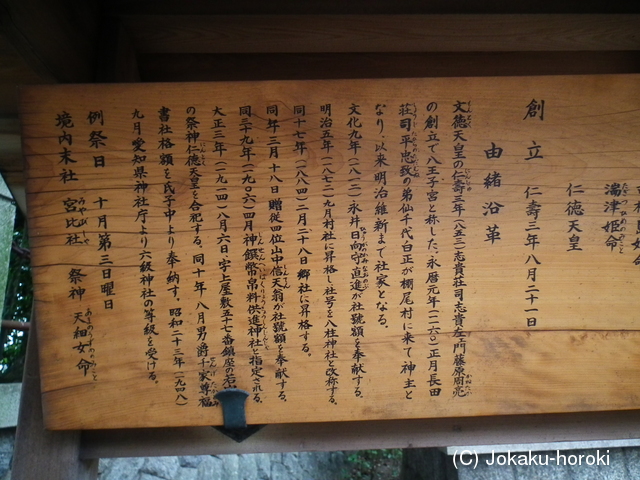 湍津姫命
仁德天皇
創立 仁壽三年八月二十一日
由緒沿革
文徳天皇の仁壽三年(八五三)志貴荘司志貴左ヱ門藤原周亮
の創立で八王子宮と称した、永暦元年(一一六〇)正月長田
荘司平忠致の弟仙千代白正が棚尾村に来て神主と
なり、以来明治維新まで社家となる。
文化九年(一八一二)永井日向守直進が社號額を奉献する。
明治五年(一八七二)九月村社に昇格し社号を八柱神社と改称する。
同十七年(一八八四)二月二八日郷社に昇格する。
同年三月十八日贈従四位山中信天翁が社號額を奉献する。
同三九年(一九〇六)四月神饌幣帛料供進神社と指定される。
大正三年(一九一四)八月六日字上屋敷五十七番鎮座の若
の祭神仁徳天皇を合祀する、同十年八月男爵千家尊福
書社格額を氏子中より奉納す、昭和二十三年(一九四八)
九月愛知県神社庁より六級神社の等級を受ける。
例祭日 十月第三日曜日
境内末社 宮比社 祭神 天鈿女命
(C) Jokaku-horoki